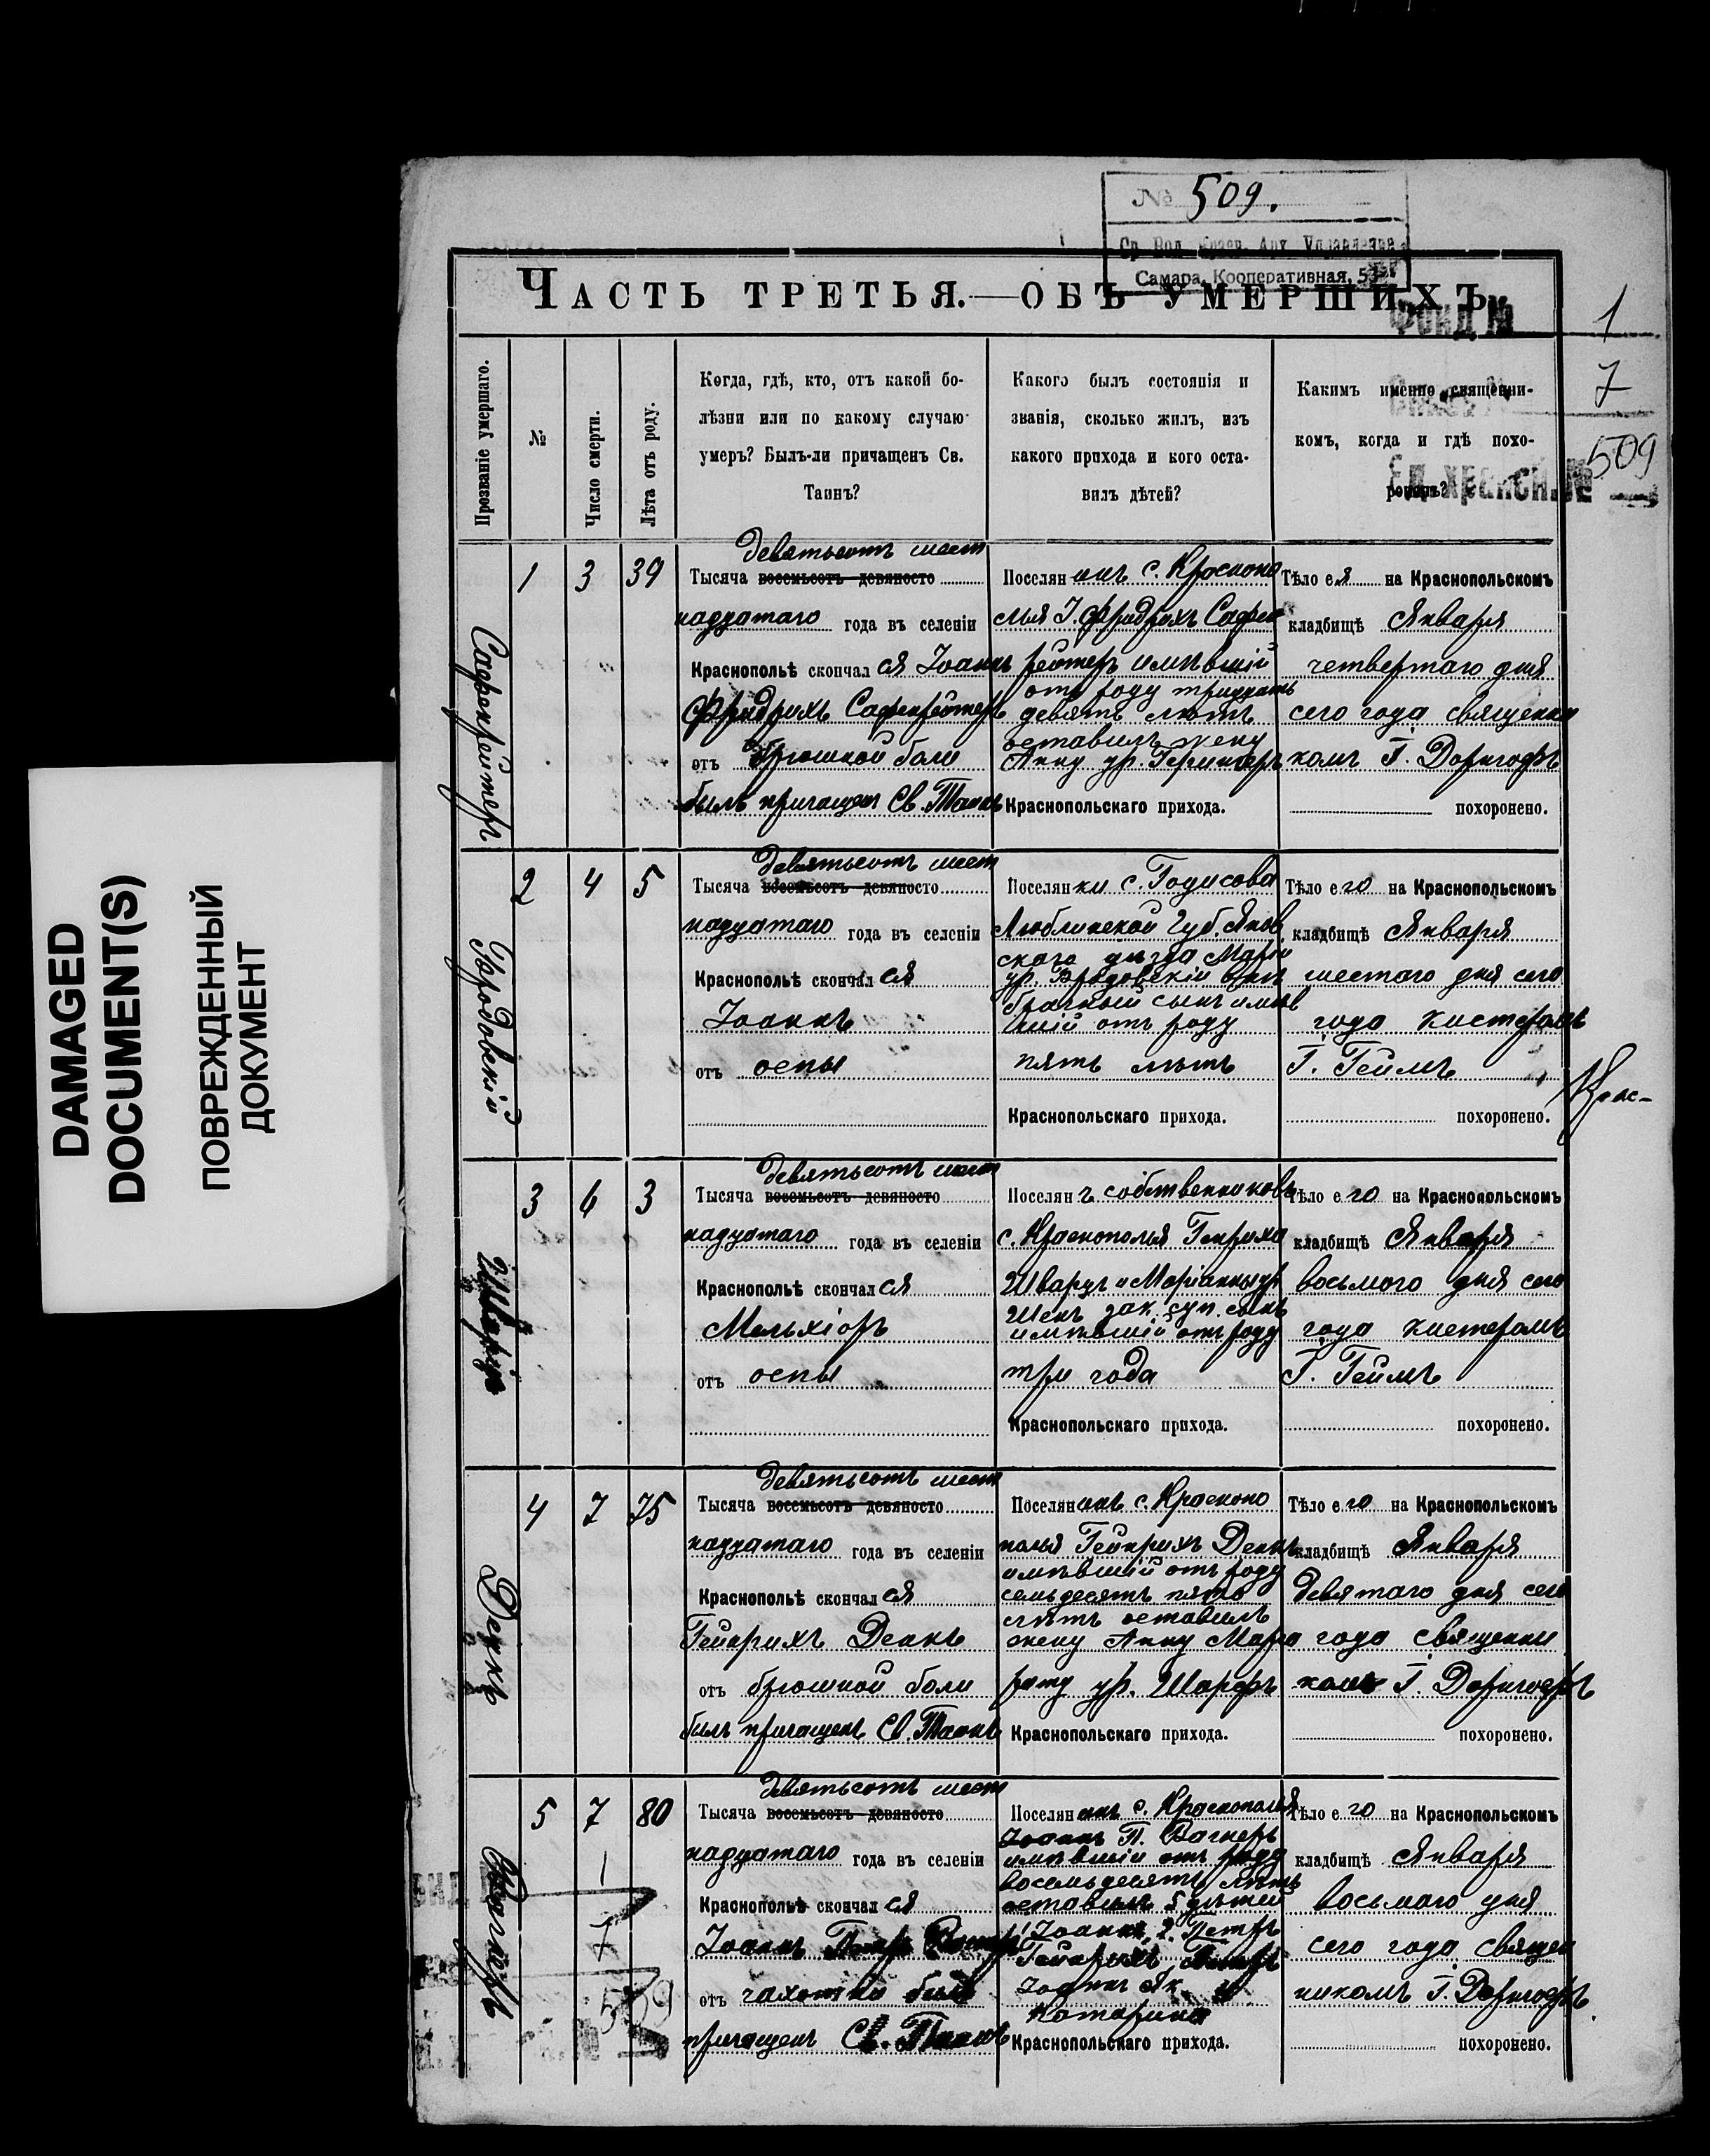 DAMAGED
DOCUMENT(S)
ПОВРЕЖДЕННЫЙ
ДОКУМЕНТ
№ 509.
Ср. Вол. Краев. Арх. Управление
Самара, Кооперативная, 53
ЧАСТЬ ТРЕТЬЯ.—ОБЪ УМЕРШИХЪ.
ФОНД № 1
7
ЕД. ХРАНЕН. № 509
Прозваніе умершаго.
№
Число смерти.
Лѣта отъ роду.
Когда, гдѣ, кто, отъ какой бо-
лѣзни или по какому случаю
умеръ? Былъ-ли причащенъ Св.
Таинъ?
Какого былъ состоянія и
званія, сколько жилъ, изъ
какого прихода и кого оста-
вилъ дѣтей?
Какимъ именно священни-
комъ, когда и гдѣ похо-
роненъ?
Сафенрейтеръ
1 3 39
девятьсотъ шест
Тысяча восемьсотъ девяносто
надцатаго года въ селеніи
Краснополье скончался Іоаннъ
Фридрихъ Сафенрейтеръ
отъ брюшной боли
былъ причащенъ Св. Таинъ
Поселянинъ с. Краснопо
лья І. Фридрихъ Сафен
рейтеръ имѣвшій
отъ роду тридцать
девять лѣтъ
оставилъ жену
Анну ур. Герингеръ
Краснопольскаго прихода.
Тѣло ея на Краснопольскомъ
кладбищѣ Января
четвертаго дня
сего года священни
комъ Г. Дорнгофъ
похоронено.
Бродовскій
2 4 5
девятьсотъ шест
Тысяча восемьсотъ девяносто
надцатаго года въ селеніи
Краснополье скончался
Іоаннъ
отъ оспы
Поселянки с. Годисова
Люблинской Губ. Янов
скаго уѣзда Маріи
ур. Бродовскій внѣ
брачный сынъ имѣв
шій отъ роду
пять лѣтъ
Краснопольскаго прихода.
Тѣло его на Краснопольскомъ
кладбищѣ Января
шестаго дня сего
года кистеромъ
Г. Геймъ
похоронено.
Крас-
Шварцъ
3 6 3
девятьсотъ шест
Тысяча восемьсотъ девяносто
надцатаго года въ селеніи
Краснополье скончался
Мельхіоръ
отъ оспы
Поселянъ собственниковъ
с. Краснополья Генриха
Шварцъ и Маріанны ур.
Шенъ зак. суп. сынъ
имѣвшій отъ роду
три года
Краснопольскаго прихода.
Тѣло его на Краснопольскомъ
кладбищѣ Января
восьмого дня сего
года кистеромъ
Г. Геймъ
похоронено.
Деннъ
4 7 75
девятьсотъ шест
Тысяча восемьсотъ девяносто
надцатаго года въ селеніи
Краснополье скончался
Гейнрихъ Деннъ
отъ брюшной боли
былъ причащенъ Св. Таинъ
Поселянинъ с. Краснопо
полья Гейнрихъ Деннъ
имѣвшій отъ роду
семьдесятъ пять
лѣтъ оставилъ
жену Анну Марга
риту ур. Шарфъ
Краснопольскаго прихода.
Тѣло его на Краснопольскомъ
кладбищѣ Января
девятаго дня сего
года священни
комъ Г. Дорнгофъ
похоронено.
Вагнеръ
5 7 80
девятьсотъ шест
Тысяча восемьсотъ девяносто
надцатаго года въ селеніи
Краснополье скончался
Іоаннъ Петръ Вагнеръ
отъ чахотки былъ
причащенъ Св. Таинъ
Поселянинъ с. Краснополья
Іоаннъ П. Вагнеръ
имѣвшій отъ роду
восемьдесятъ лѣтъ
оставилъ 5 дѣтей
Іоаннъ, Петръ
Гейнрихъ
Іоаннъ Як. и
Катарина
Краснопольскаго прихода.
Тѣло его на Краснопольскомъ
кладбищѣ Января
восьмаго дня
сего года священ
никомъ Г. Дорнгофъ
похоронено.
1
7
509